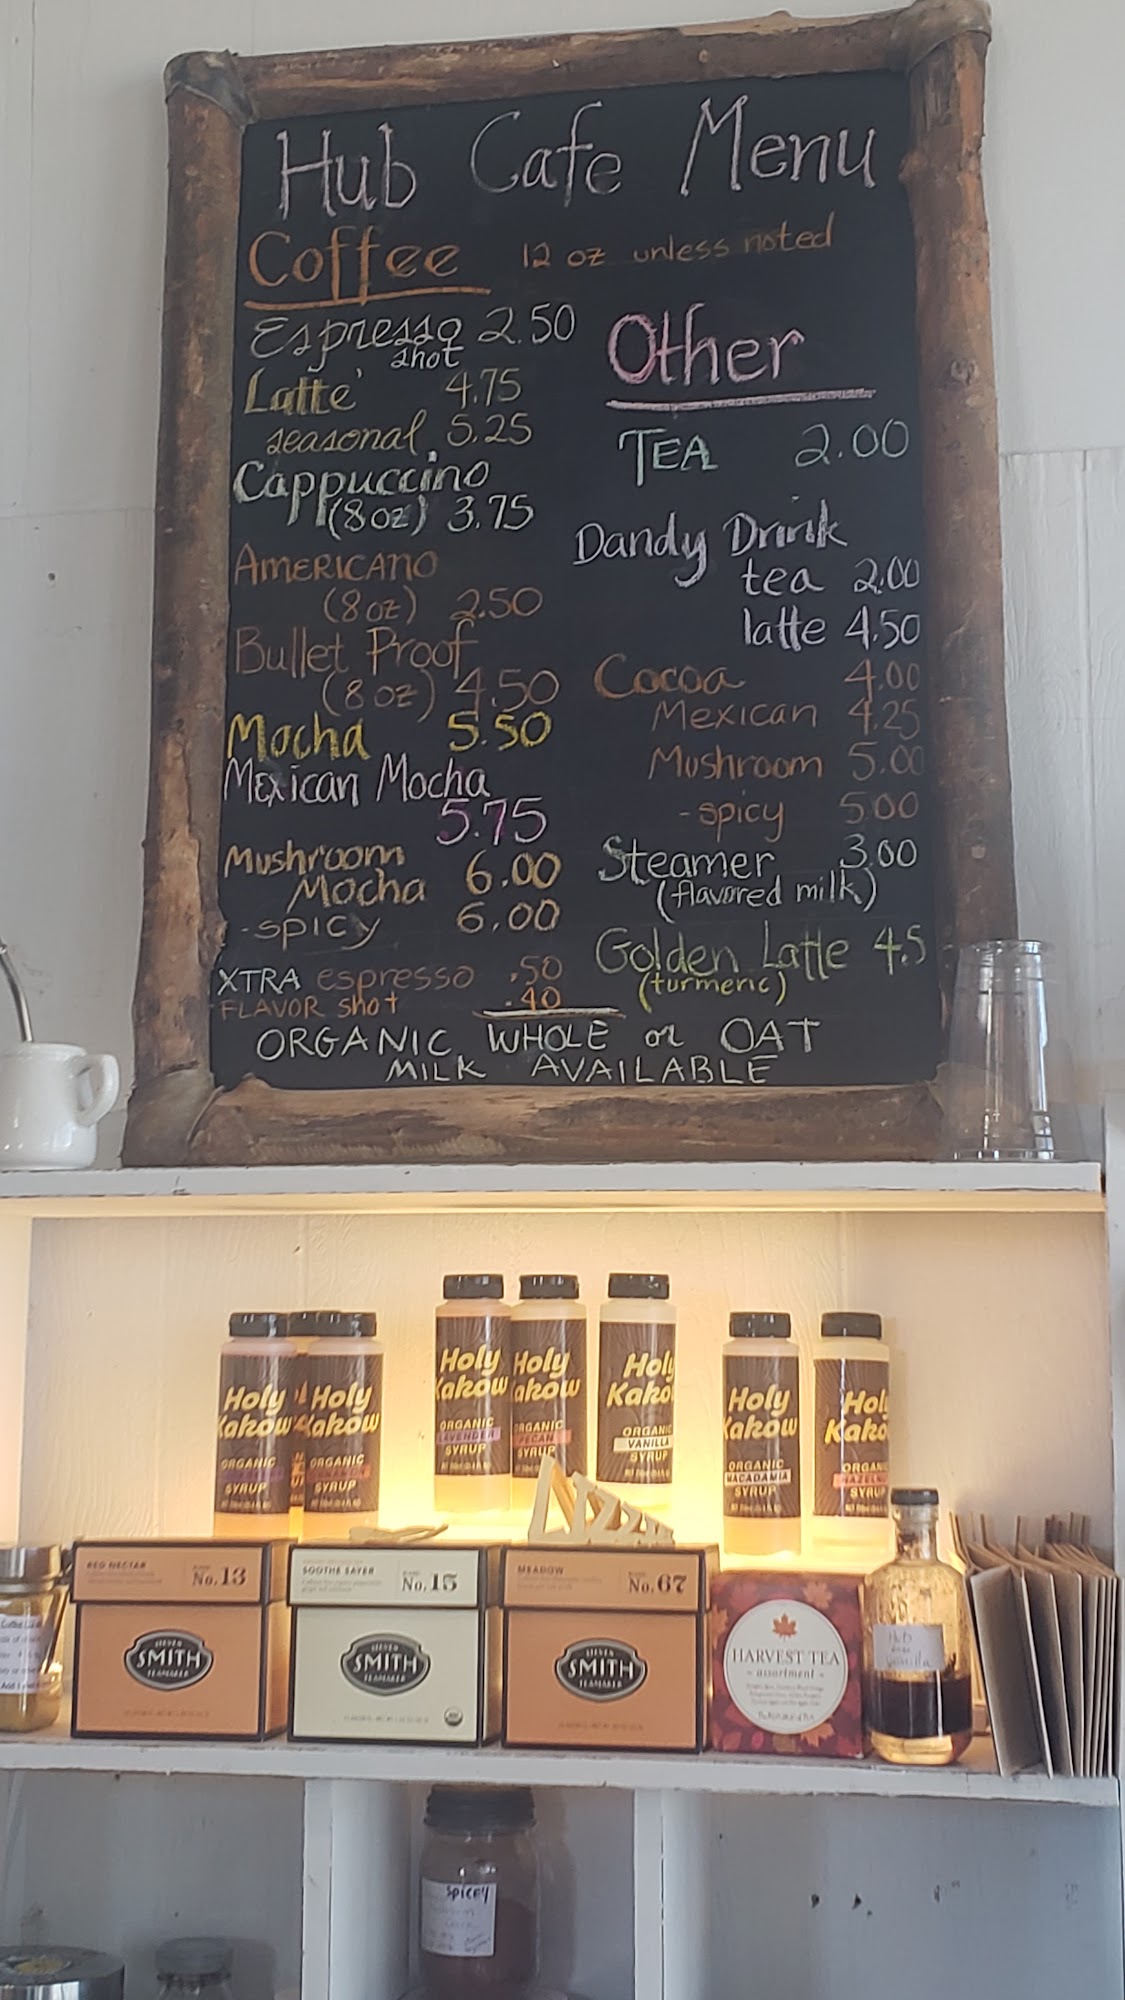 Hub Cafe Menu
Coffee 12 oz unless noted
Espresso 2.50
shot
Latte' 4.75
seasonal 5.25
Cappuccino
(8oz) 3.75
AMERICANO
(8oz) 2.50
Bullet Proof
(8oz) 4.50
Mocha 5.50
Mexican Mocha
5.75
Mushroom
Mocha 6.00
-spicy 6.00
XTRA espresso .50
FLAVOR shot .40
Other
TEA 2.00
Dandy Drink
tea 2.00
latte 4.50
Cocoa 4.00
Mexican 4.25
Mushroom 5.00
-spicy 5.00
Steamer 3.00
(flavored milk)
Golden Latte 4.5
(turmeric)
ORGANIC WHOLE or OAT
MILK AVAILABLE
Holy
Kakow
ORGANIC
SYRUP
Holy
Kakow
ORGANIC
SYRUP
Holy
Kakow
ORGANIC
LAVENDER
SYRUP
Holy
Kakow
ORGANIC
PECAN
SYRUP
Holy
Kakow
ORGANIC
VANILLA
SYRUP
Holy
Kakow
ORGANIC
MACADAMIA
SYRUP
Holy
Kakow
ORGANIC
HAZELNUT
SYRUP
RED NECTAR
No.13
STEVEN
SMITH
TEAMAKER
SOOTHE SAYER
No.15
STEVEN
SMITH
TEAMAKER
MEADOW
No.67
STEVEN
SMITH
TEAMAKER
HARVEST TEA
assortment
Hub
vanilla
SPICEY